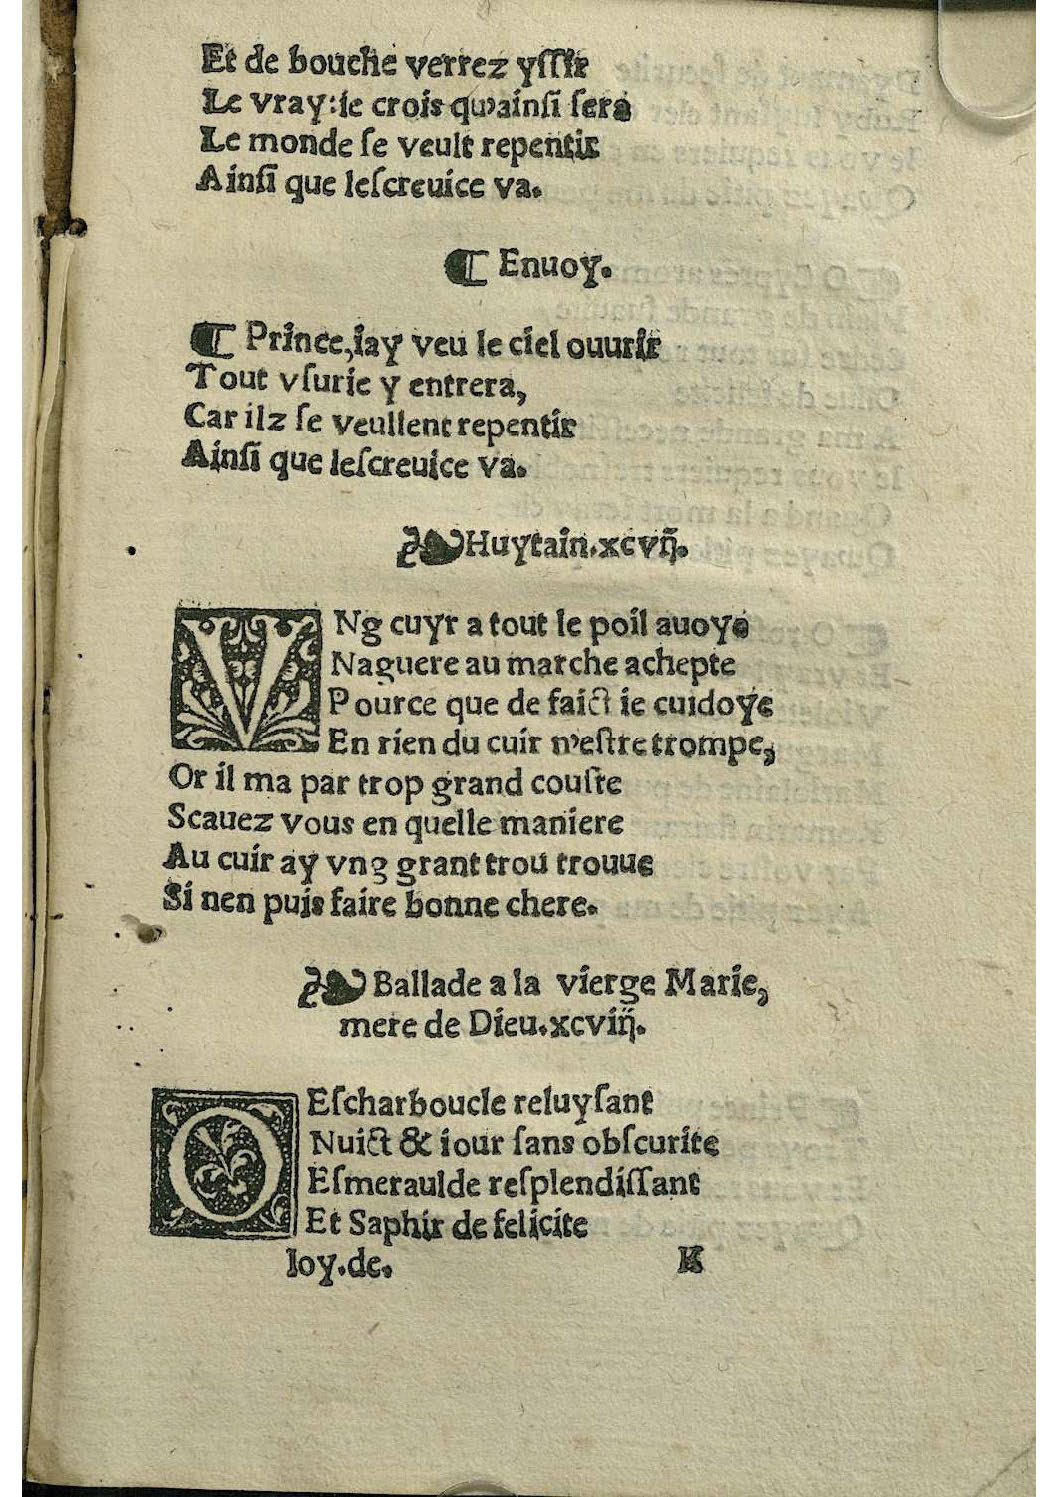 Et de bouche verrez yſſir
Le vray:ie crois qu'ainſi ſera
Le monde ſe veult repentir
Ainſi que leſcreuice va.
¶ Enuoy.
¶ Prince,iay veu le ciel ouurir
Tout vſurie y entrera,
Car ilz ſe veullent repentir
Ainſi que leſcreuice va.
❧ Huytain.xcvij.
VNg cuyr a tout le poil auoye
Naguere au marche achepte
Pource que de faict ie cuidoye
En rien du cuir n'eſtre trompe,
Or il ma par trop grand couſte
Scauez vous en quelle maniere
Au cuir ay vng grant trou trouue
Si nen puis faire bonne chere.
❧ Ballade a la vierge Marie,
mere de Dieu.xcviij.
O Eſcharboucle reluyſant
Nuict & iour ſans obſcurite
Eſmeraulde reſplendiſſant
Et Saphir de felicite
Ioy.de. K